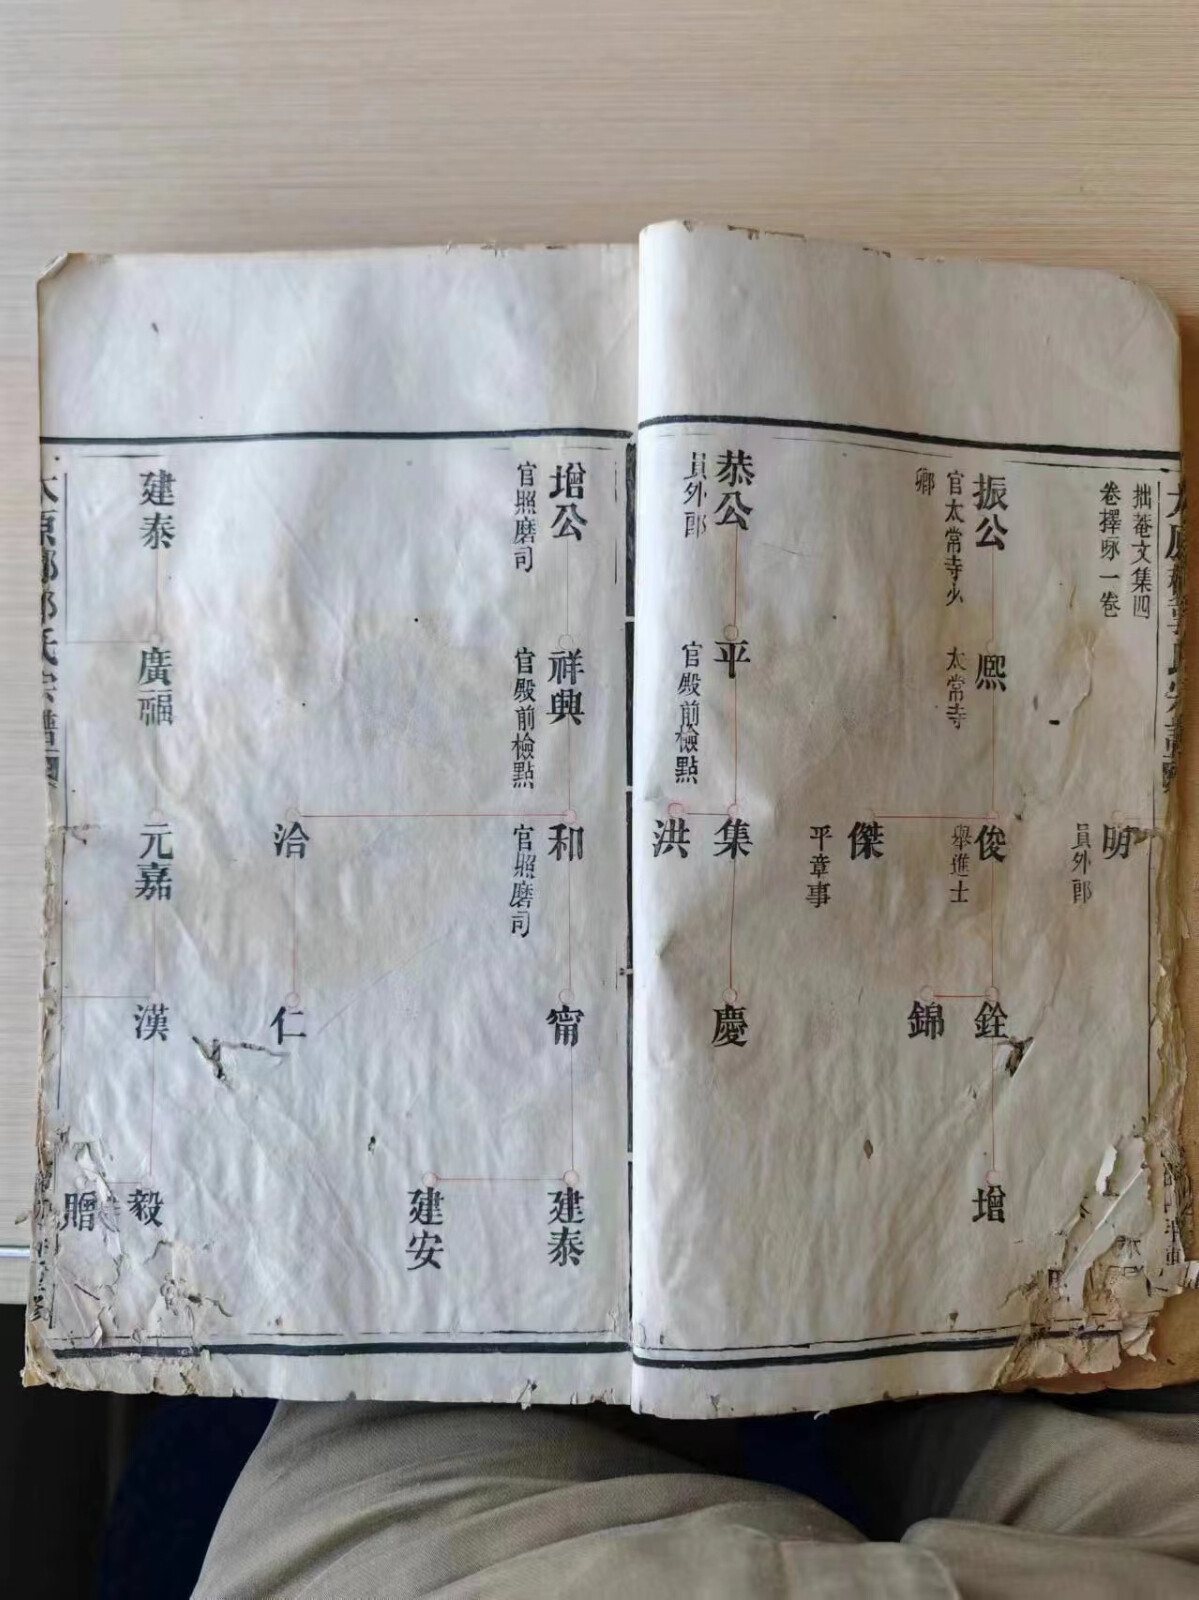 拙菴文集四
卷擇咏一卷
明
員外郎
振公
官太常寺少
卿
熈
太常寺
俊
舉進士
傑
平章事
銓
錦
增
恭公
員外郎
平
官殿前檢點
集
洪
慶
增公
官照磨司
祥興
官殿前檢點
和
官照磨司
洽
甯
仁
建泰
建安
建泰
廣福
元嘉
漢
毅
贈